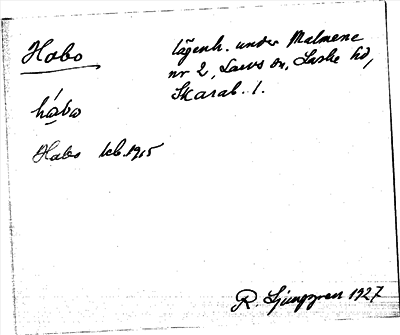 Habo
lägenh. under Malmene
nr 2, Larvs sn, Laske hd,
Skarab. l.
hábo
Habo kb. 1915
R. Ljunggren 1927